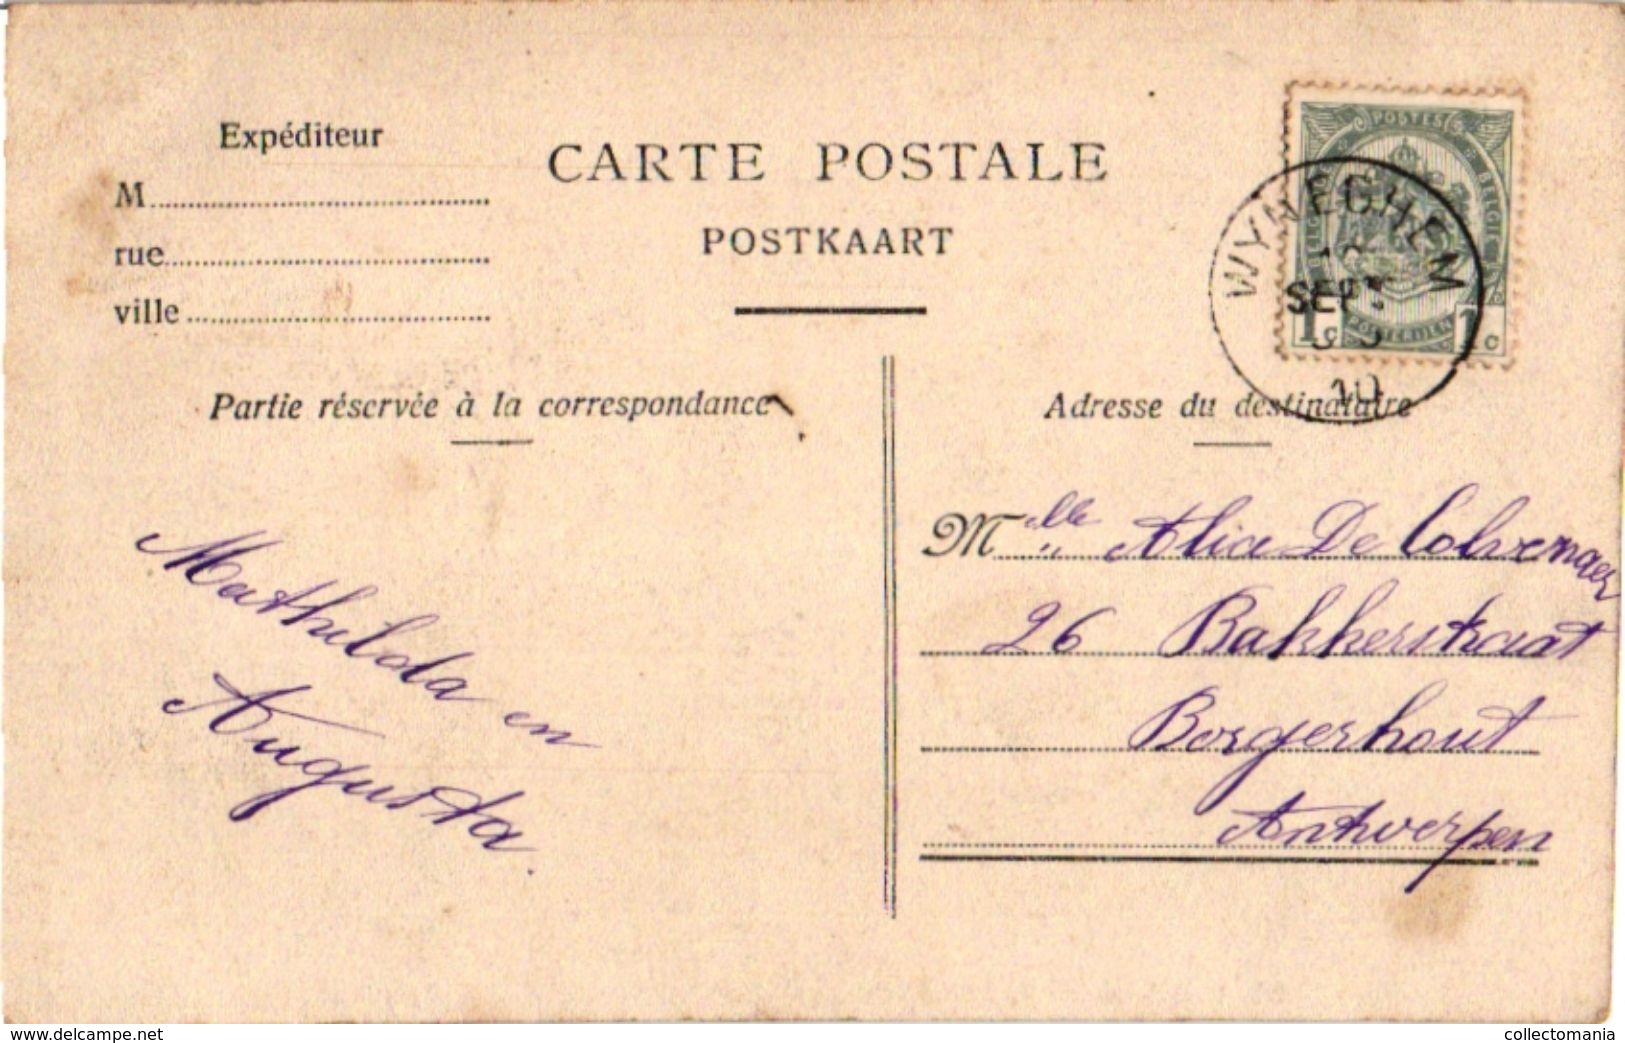 Expéditeur
M
rue
ville
CARTE POSTALE
POSTKAART
POSTES
BELGIE
POSTERIJEN
1c 1c
WYNEGHEM
SEPT
10
Partie réservée à la correspondance
Adresse du destinataire
Mathilda en
Augusta.
Melle Alice De Colvenaer
26 Bakkerstraat
Borgerhout
Antwerpen
www.delcampe.net
collectomania